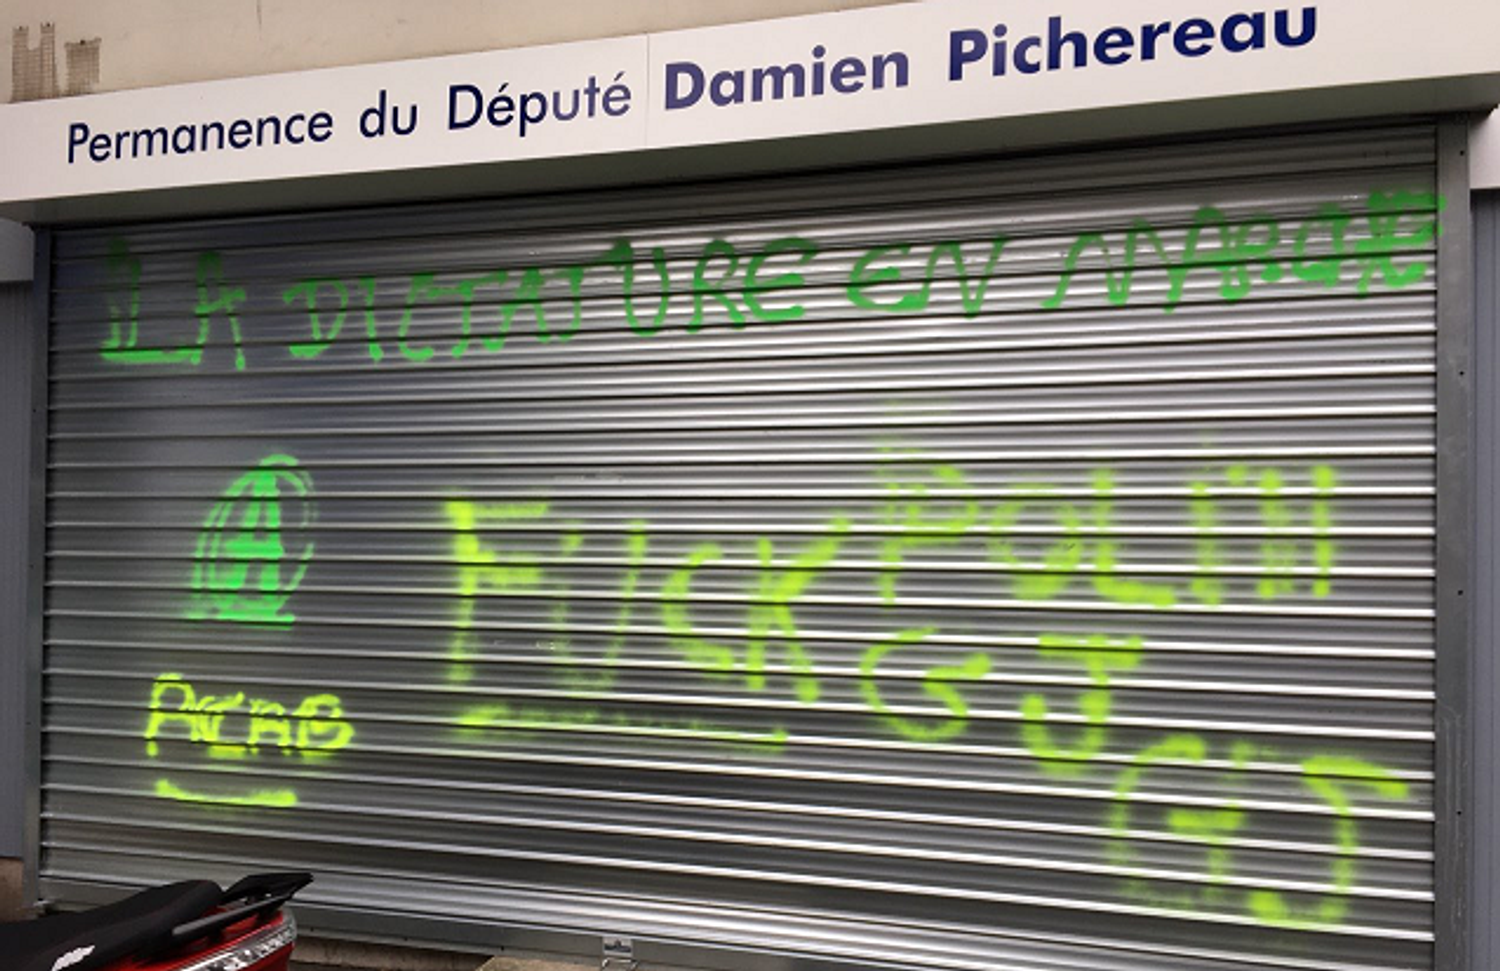 Permanence du Député Damien Pichereau
LA DICTATURE EN MARCHE
A
FUCK
GJ
ACAB
GJ